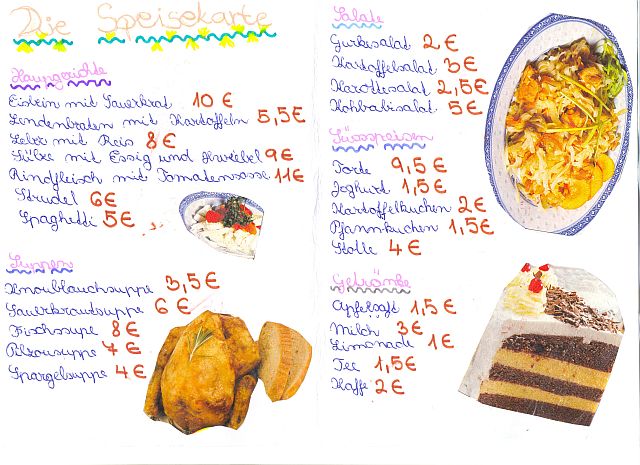 Die Speisekarte
Hauptgerichte
Eisbein mit Sauerkraut 10 €
Lendenbraten mit Kartoffeln 5,5€
Leber mit Reis 8 €
Sülze mit Essig und Zwiebel 9€
Rindfleisch mit Tomatensosse 11€
Strudel 6€
Spaghetti 5€
Suppen
Knoublauchsuppe 3,5€
Sauerkrautsuppe 6 €
Fischssupe 8€
Pilzsuppe 7 €
Spargelsuppe 4€
Salate
Gurkesalat 2€
Kartoffelsalat 3€
Karottesalat 2,5€
Kohlrabisalat 5€
Süssspeisen
Torte 9,5€
Joghurt 1,5€
Kartoffelkuchen 2€
Pfannkuchen 1,5€
Stolle 4€
Getränke
Apfelsaft 1,5€
Milch 3€
Limonade 1€
Tee 1,5€
Kaffe 2€